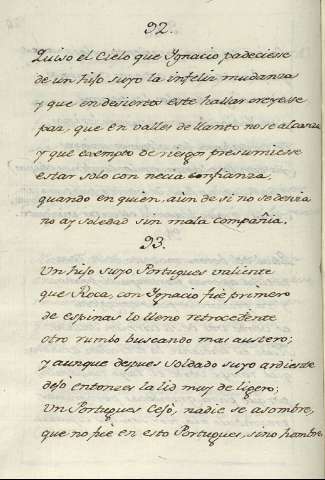 92.
Quiso el Cielo que Ygnacio padeciesse
de un hijo suyo la infeliz mudanza
y que en desierto este hallar creyesse
paz, que en valles de llanto no se alcanza
y que exempto de riesgos presumiesse
estar solo con necia confianza,
quando en quien, aùn de si no se devia
no ay soledad sin mala compañia.
93.
Un hijo suyo Portugues valiente
que Roca, con Ygnacio fuè primero
de espinas lo lleno retrocedente
otro rumbo buscando mas austero;
y aunque depues soldado suyo ardiente
dejo entonzes la lid muy de ligero;
Un Portugues Cesò, nadie se asombre,
que no fuè en esto Portugues, sino hombre